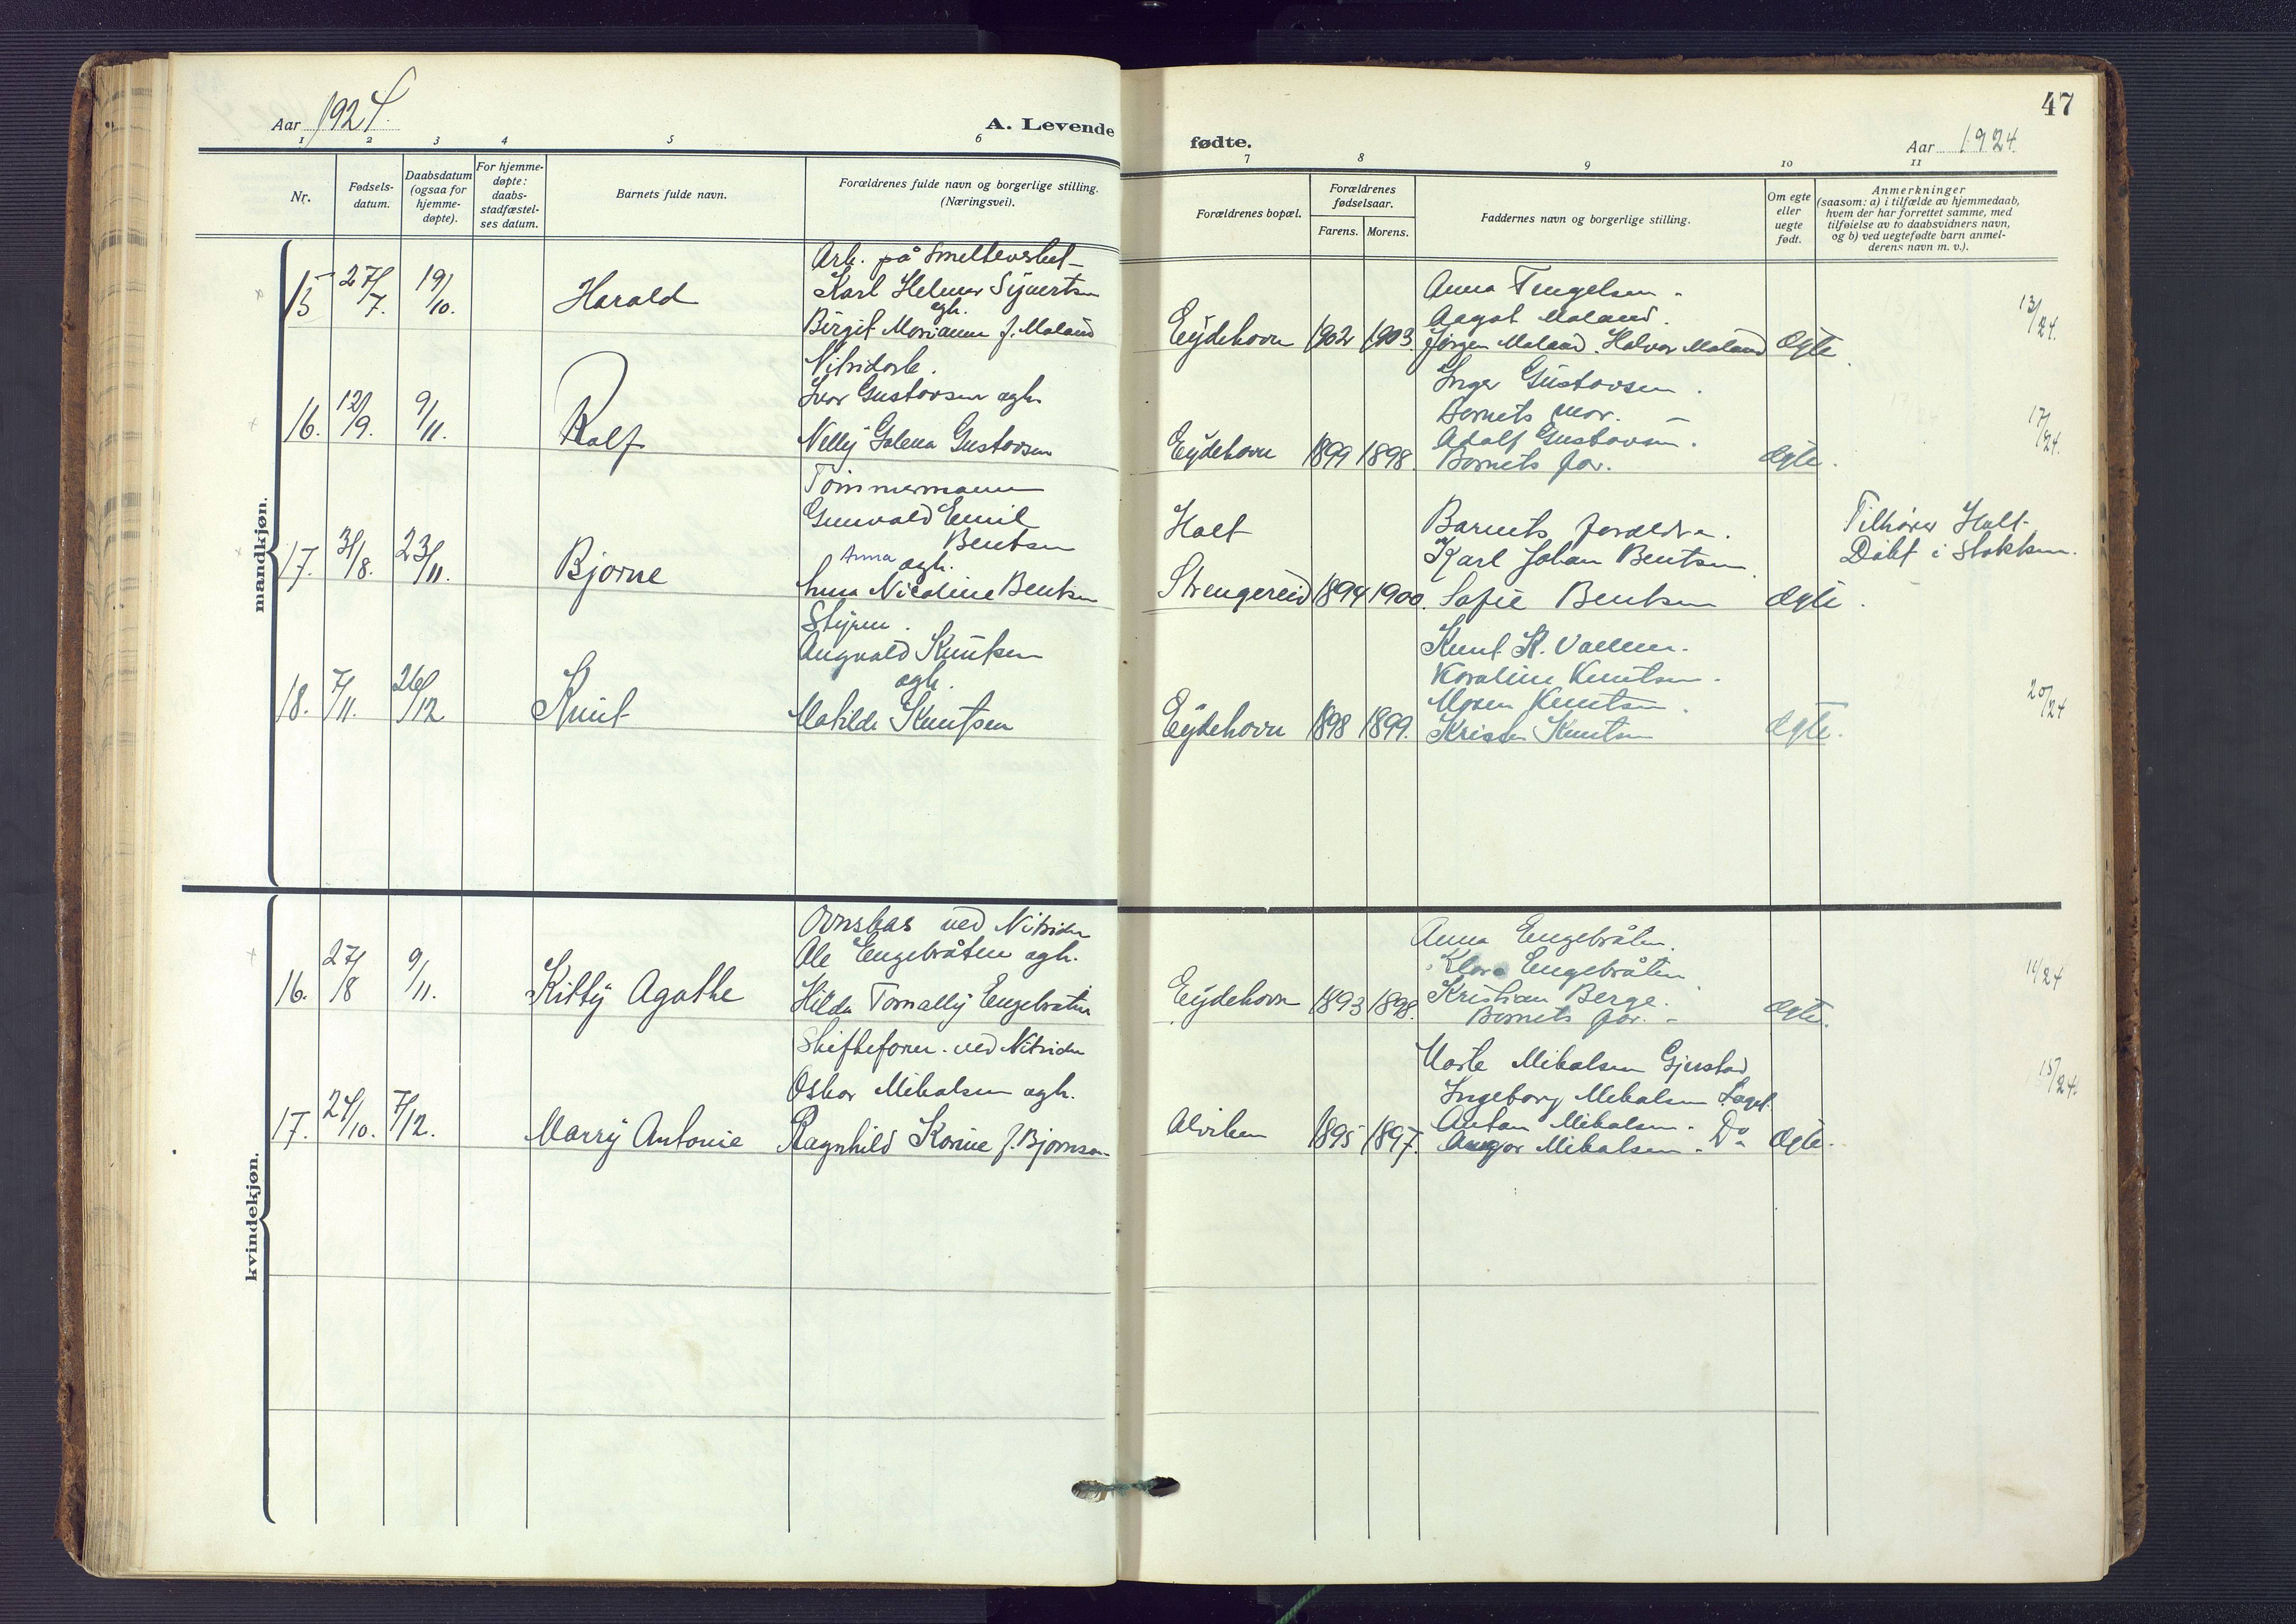 47
Aar 1924.
A. Levende
fødte.
Aar 1924
1 2 3 4 5 6
7 8 9 10 11
Nr.
Fødsels-
datum.
Daabsdatum
(ogsaa for
hjemme-
døpte).
For hjemme-
døpte:
daabs-
stadfæstel-
ses datum.
Barnets fulde navn.
Forældrenes fulde navn og borgerlige stilling.
(Næringsvei).
Forældrenes bopæl.
Forældrenes
fødselsaar.
Farens. Morens.
Faddernes navn og borgerlige stilling.
Om egte
eller
uegte
født.
Anmerkninger
(saasom: a) i tilfælde av hjemmedaab,
hvem der har forrettet samme, med
tilføielse av to daabsvidners navn,
og b) ved uegtefødte barn anmel-
derens navn m. v.).
mandkjøn.
15 27/7. 19/10. Harald
Arb. på Smelteverket
Karl Helmer Sijvertsen
egh.
Birgit Marianne f. Maland
Eydehavn 1902 1903.
Anna Tengelsen.
Aagot Maland.
Jørgen Maland. Halvor Maland
Ægte.
13/24.
16. 12/9. 9/11. Ralf
Nitridarb.
Ivar Gustavsen egh.
Nelly Galena Gustavsen
Eydehavn 1899 1898.
Inger Gustavsen.
Barnets mor.
Adolf Gustavsen.
Barnets far.
Ægte.
17/24.
17. 31/8. 23/11. Bjarne
Tømmermann
Gunvald Emil
Bentsen
Anna egh.
Anna Nicoline Bentsen
Holt
Strengereid 1894 1900.
Barnets foreldre.
Karl Johan Bentsen.
Sofie Bentsen
Ægte.
Tilhører Holt.
Døbt i Stokken.
18. 7/11. 26/12 Knut
Styrm.
Augvald Knutsen
egh.
Matilde Knutsen
Eydehavn 1898 1899.
Knut K. Vallene.
Karoline Knutsen.
Maren Knutsen.
Kristen Knutsen
Ægte.
20/24
kvindekjøn.
16. 27/8 9/11. Kitty Agathe
Ovnsbas ved Nitriden
Ole Engebråten egh.
Hilda Tomally Engebråten
Eydehavn 1893 1898.
Anna Engebråten.
Klara Engebråten
Kristian Berge.
Barnets far.
Ægte.
14/24
17. 24/10. 7/12. Marry Antonie
Skifteform. ved Nitriden
Oskar Mikalsen egh.
Ragnhild Korine f. Bjørnsen
Alviken 1895 1897.
Marte Mikalsen Gjerstad
Ingeborg Mikalsen
Anton Mikalsen. Do
Mikalsen. Do
Ægte.
15/24.